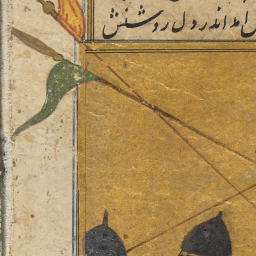 آمد اندر دل روشنش